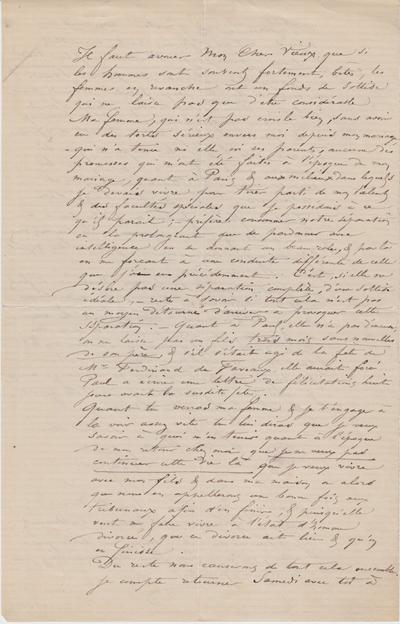 Il faut avouer Mon Cher Vieux que si
les hommes sont souvent fortement bêtes, les
femmes en revanche ont un fonds de sottise
qui ne laisse pas que d'être considérable
Ma femme, qui n'est pas sans avoir
eu des torts sérieux envers moi depuis mon mariage
qui n'a tenu ni elle ni ses parents, aucune des
promesses qui m'ont été faites à l'époque de mon
mariage, quant à Paris & aux milieux dans lesquels
je devais vivre pour tirer parti de mes talents
& des facultés spéciales que je possédais à ce
qu'il paraît; préfère consommer notre séparation
en la prolongeant que de pardonner avec
intelligence en se donnant un beau rôle, & partant
en me forçant à une conduite différente de celle
que j'ai eu précédemment. C'est, si elle ne
désire pas une séparation complète, d'une sottise
idéale, reste à savoir si tout cela n'est pas
un moyen détourné d'arriver à provoquer cette
séparation. Quant à Paul, elle n'a pas d'excuse,
on ne laisse pas un fils trois mois sans nouvelles
de son père & s'il s'était agi de la fête de
Mr Ferdinand de elle aurait forcé
Paul à écrire une lettre de félicitations huit
jours avant la susdite fête.
Quand tu verras ma femme & je t'engage à
la voir assez vite tu lui diras que je veux
savoir à quoi m'en tenir quant à l'époque
de mon retour chez moi que je ne veux pas
continuer cette vie là que je veux vivre
avec mon fils & dans ma maison ou alors
que nous en appellerons une bonne fois aux
tribunaux afin d'en finir, & puisqu'elle
veut me faire vivre à l'état d'homme
divorcé, que ce divorce ait lieu & qu'on
en finisse.
Du reste nous causerons de tout cela ensemble
je compte retourner Samedi avec toi à